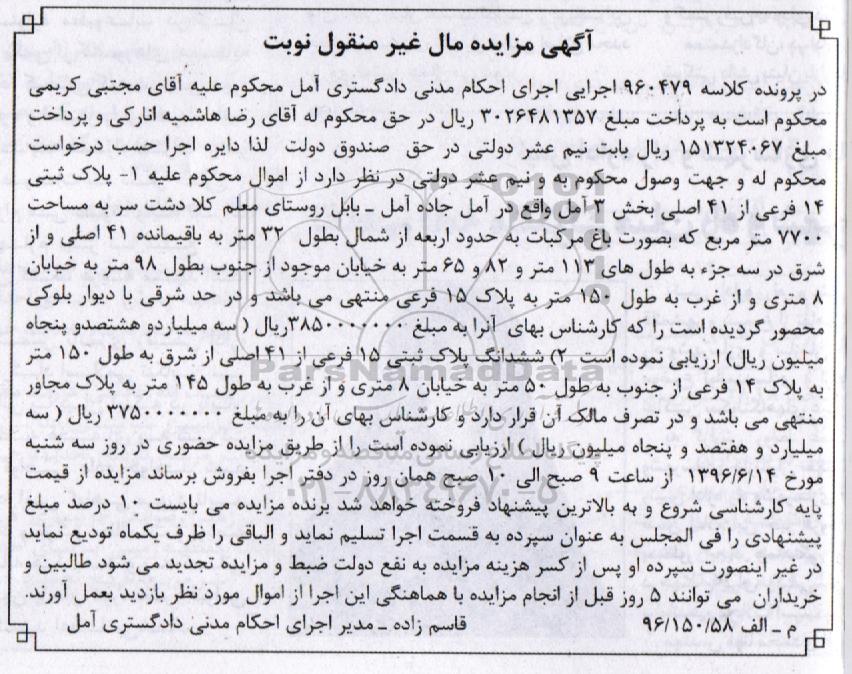 آگهی مزایده مال غیر منقول نوبت
در پرونده کلاسه ۹۶۰۴۷۹ اجرایی اجرای احکام مدنی دادگستری آمل محکوم علیه آقای مجتبی کریمی
محکوم است به پرداخت مبلغ ۳۰۲۶۴۸۱۳۵۷ ریال در حق محکوم له آقای رضا هاشمیه انارکی و پرداخت
مبلغ ۱۵۱۳۲۴۰۶۷ ریال بابت نیم عشر دولتی در حق صندوق دولت لذا دایره اجرا حسب درخواست
محکوم له و جهت وصول محکوم به و نیم عشر دولتی در نظر دارد از اموال محکوم علیه ۱- پلاک ثبتی
۱۴ فرعی از ۴۱ اصلی بخش ۳ آمل واقع در آمل جاده آمل ـ بابل روستای معلم کلا دشت سر به مساحت
۷۷۰۰ متر مربع که بصورت باغ مرکبات به حدود اربعه از شمال بطول ۳۲ متر به باقیمانده ۴۱ اصلی و از
شرق در سه جزء به طول های ۱۱۳ متر و ۸۲ و ۶۵ متر به خیابان موجود از جنوب بطول ۹۸ متر به خیابان
۸ متری و از غرب به طول ۱۵۰ متر به پلاک ۱۵ فرعی منتهی می باشد و در حد شرقی با دیوار بلوکی
محصور گردیده است را که کارشناس بهای آنرا به مبلغ ۳۸۵۰۰۰۰۰۰۰ریال ( سه میلیاردو هشتصدو پنجاه
میلیون ریال) ارزیابی نموده است ۲) ششدانگ پلاک ثبتی ۱۵ فرعی از ۴۱ اصلی از شرق به طول ۱۵۰ متر
به پلاک ۱۴ فرعی از جنوب به طول ۵۰ متر به خیابان ۸ متری و از غرب به طول ۱۴۵ متر به پلاک مجاور
منتهی می باشد و در تصرف مالک آن قرار دارد و کارشناس بهای آن را به مبلغ ۳۷۵۰۰۰۰۰۰۰ ریال ( سه
میلیارد و هفتصد و پنجاه میلیون ریال ) ارزیابی نموده است را از طریق مزایده حضوری در روز سه شنبه
مورخ ۱۳۹۶/۶/۱۴ از ساعت ۹ صبح الی ۱۰ صبح همان روز در دفتر اجرا بفروش برساند مزایده از قیمت
پایه کارشناسی شروع و به بالاترین پیشنهاد فروخته خواهد شد برنده مزایده می بایست ۱۰ درصد مبلغ
پیشنهادی را فی المجلس به عنوان سپرده به قسمت اجرا تسلیم نماید و الباقی را ظرف یکماه تودیع نماید
در غیر اینصورت سپرده او پس از کسر هزینه مزایده به نفع دولت ضبط و مزایده تجدید می شود طالبین و
خریداران می توانند ۵ روز قبل از انجام مزایده با هماهنگی این اجرا از اموال مورد نظر بازدید بعمل آورند.
م ـ الف ۹۶/۱۵۰/۵۸ قاسم زاده ـ مدیر اجرای احکام مدنی دادگستری آمل
ParsNamadData
۰۲۱-۸۸۳۴۹۶۷۰-۵